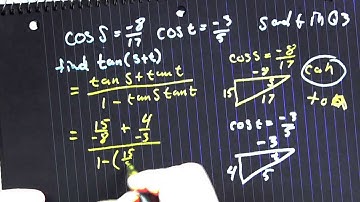 cos s = -8/17 cos t = -3/5 s and t in Q3
find tan(s+t)
= tan s + tan t / 1 - tan s tan t
= 15/-8 + 4/-3 / 1 - (15/
cos s = -8/17
-8
15
17
cos t = -3/5
-3
4
5